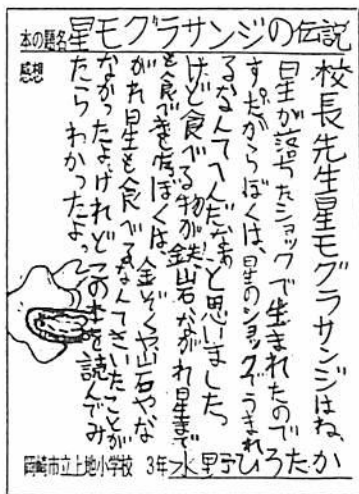 本の題名 星モグラサンジの伝説
感想
校長先生星モグラサンジはね、
星が落ちたショックで生まれたので
す。だからぼくは、星のショックでうまれ
るなんてへんだなあと思いました。
けど食べる物が鉄、岩、ながれ星まで
ぼくは、金ぞくや岩石やな
がれ星も食べるなんてきいたことが
なかったよ。けれどこの本を読んでみ
たらわかったよ。
岡崎市立上地小学校 3年 水野ひろたか